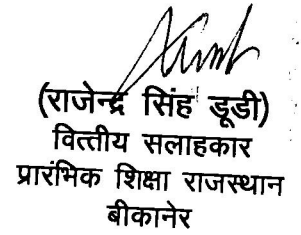 (राजेन्द्र सिंह डूडी)
वित्तीय सलाहकार
प्रारंभिक शिक्षा राजस्थान
बीकानेर